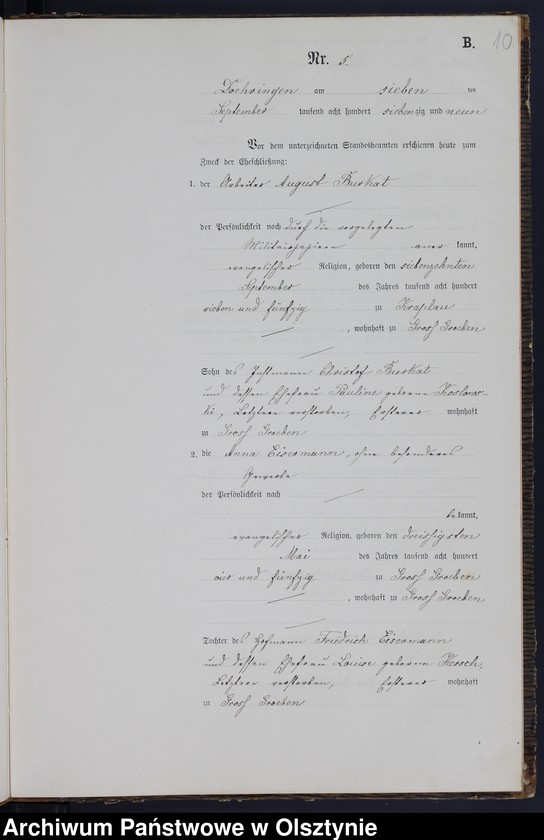 B. 10
Nr. 5.
Doehringen am sieben ten
September tausend acht hundert siebenzig und neun
Vor dem unterzeichneten Standesbeamten erschienen heute zum
Zweck der Eheschließung:
1. der Arbeiter August Buskat
der Persönlichkeit nach durch die vorgelegten
Militairpapiere aner kannt,
evangelischer Religion, geboren den siebenzehnten
September des Jahres tausend acht hundert
sieben und fünfzig zu Kraplau
, wohnhaft zu Gross Groeben
Sohn des Instmann Christof Buskat
und dessen Ehefrau Pauline geborene Koslows-
ki, Letztere verstorben, Ersterer wohnhaft
zu Gross Groeben
2. die Anna Eisermann, ohne besonderes
Gewerbe
der Persönlichkeit nach
be kannt,
evangelischer Religion, geboren den dreissigsten
Mai des Jahres tausend acht hundert
vier und fünfzig zu Gross Groeben
, wohnhaft zu Gross Groeben
Tochter des Hofmann Friedrich Eisermann
und dessen Ehefrau Louise geborene Hersch,
Letztere verstorben, Ersterer wohnhaft
zu Gross Groeben
Archiwum Państwowe w Olsztynie